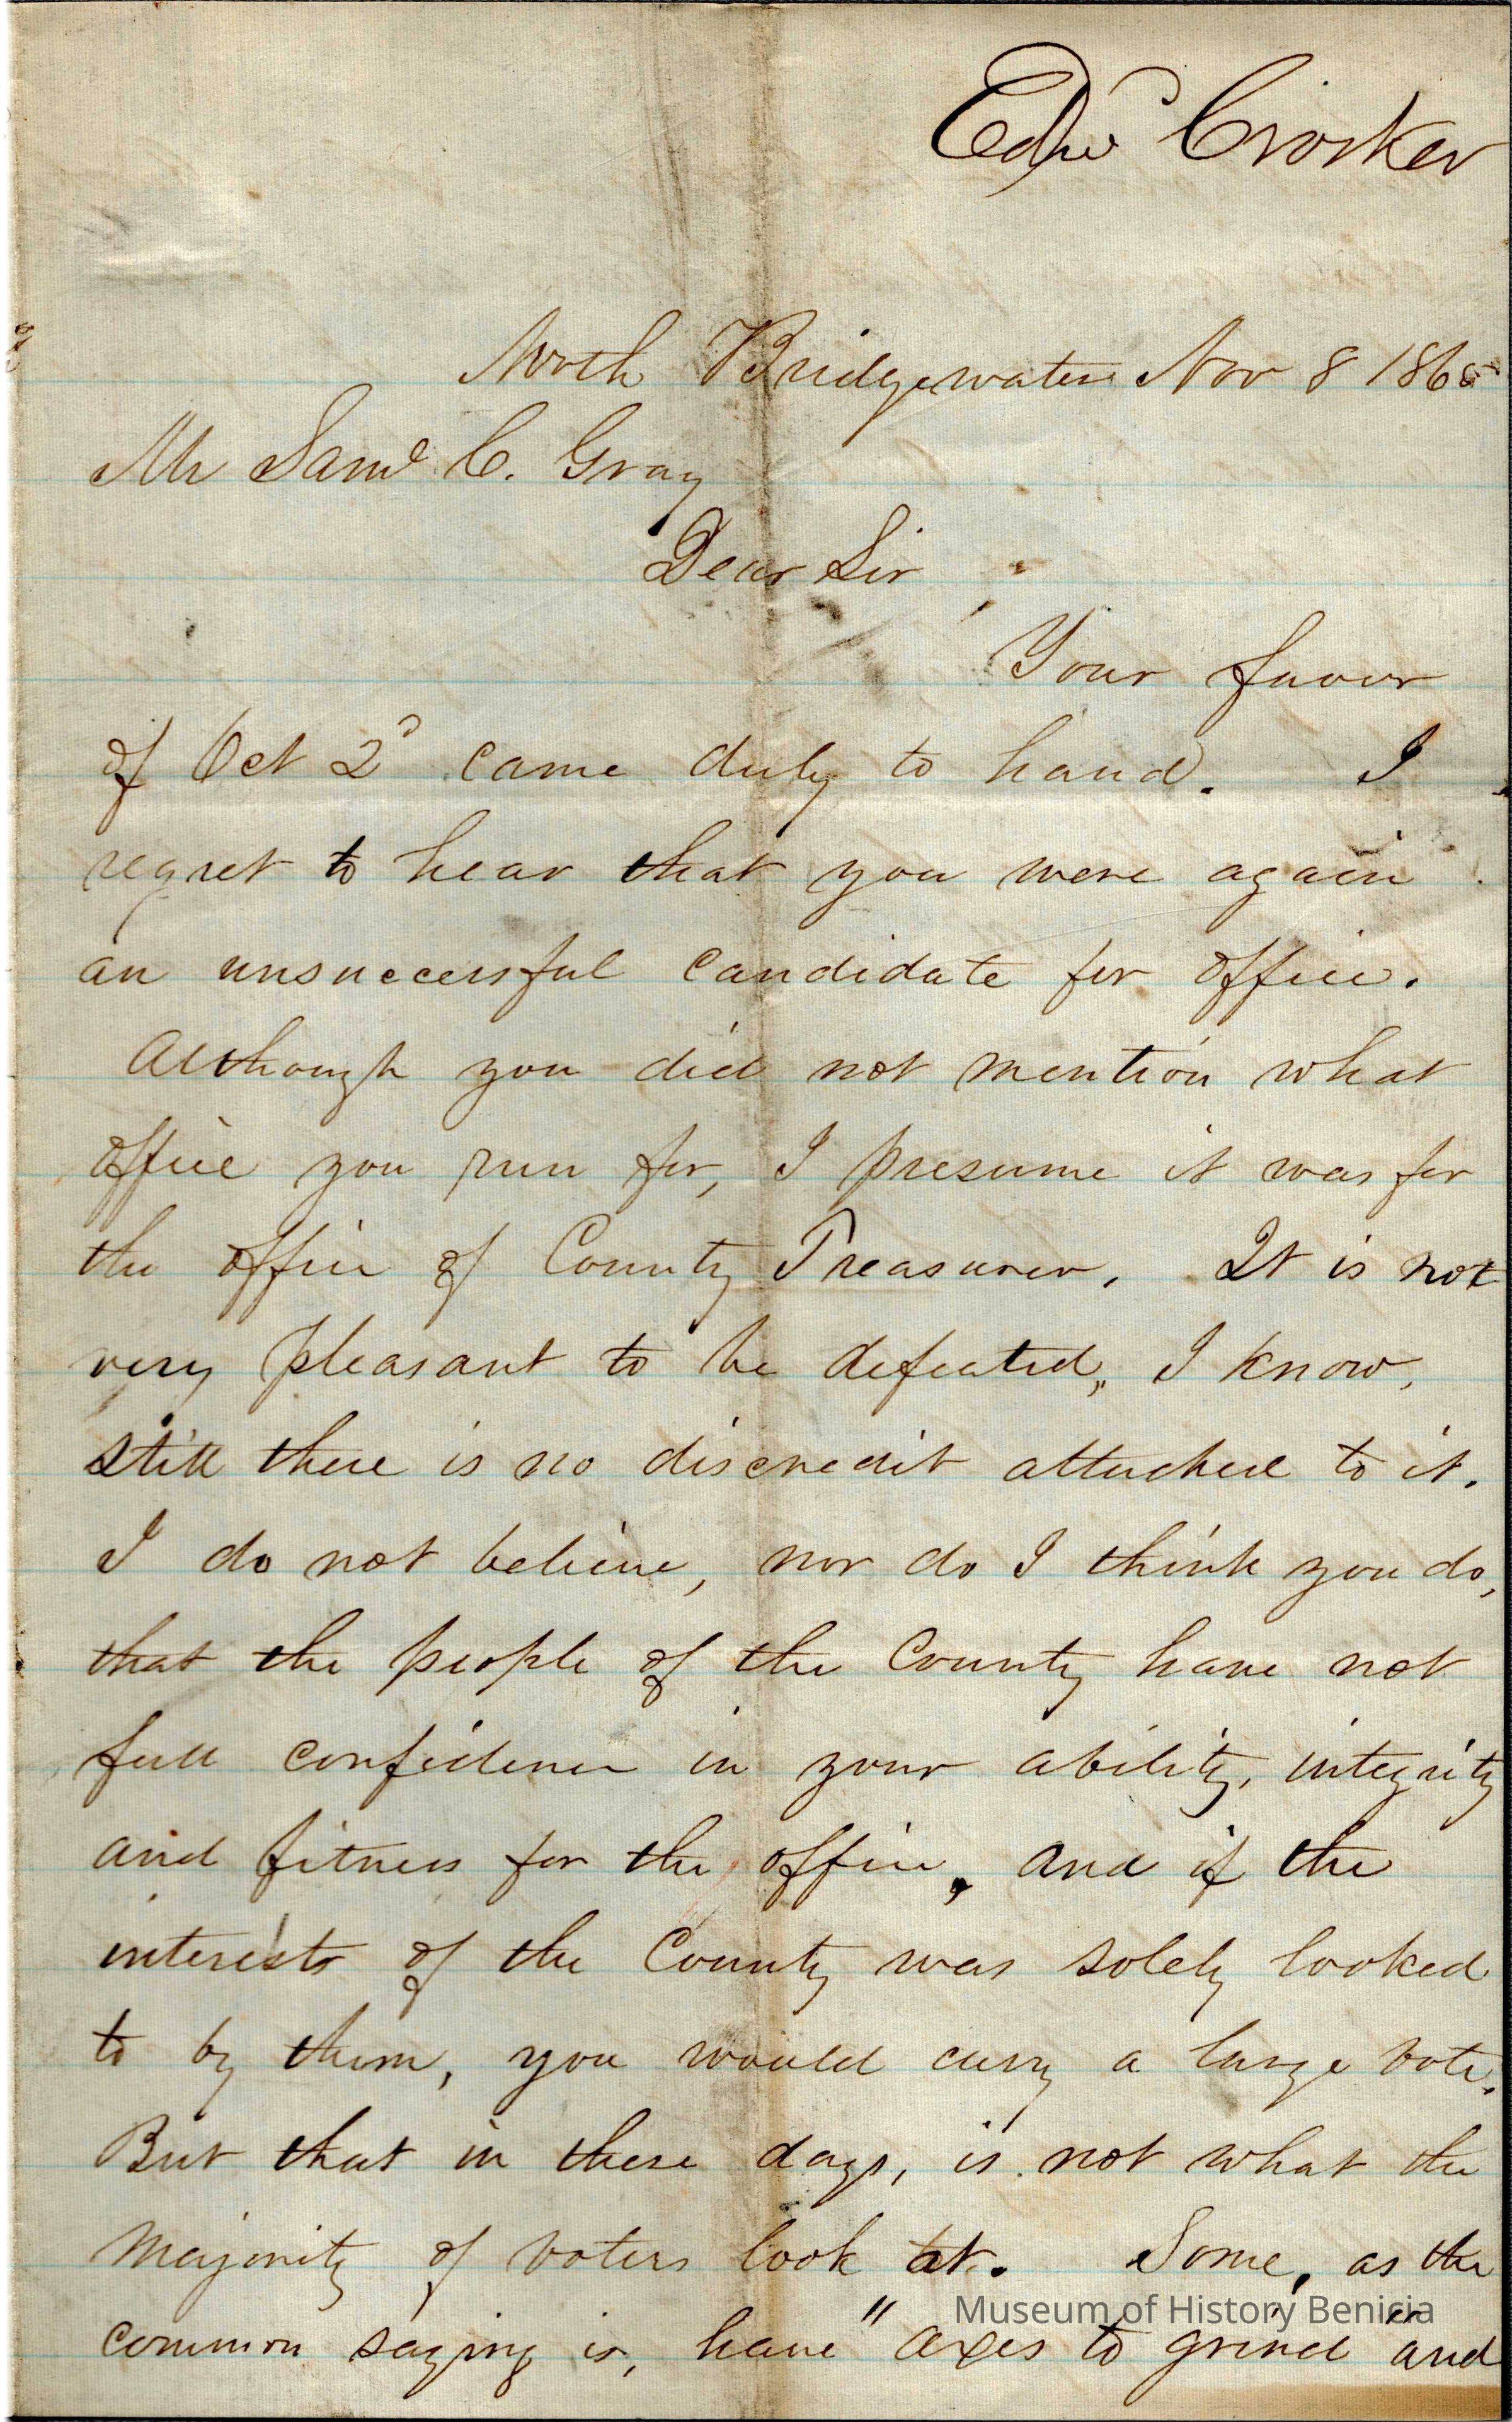 Edwd Crocker
North Bridgewater Nov 8 1865
Mr Saml C. Gray
Dear Sir
Your favor
of Oct 2d came duly to hand. I
regret to hear that you were again
an unsuccessful candidate for office.
Although you did not mention what
office you run for, I presume it was for
the office of County Treasurer. It is not
very pleasant to be defeated, I know,
still there is no discredit attached to it.
I do not believe, nor do I think you do,
that the people of the County have not
full confidence in your ability, integrity
and fitness for the office, and if the
interests of the County was solely looked
to by them, you would carry a large vote.
But that in these days, is not what the
majority of voters look at. Some, as the
common saying is, have "axes to grind" and
Museum of History Benicia